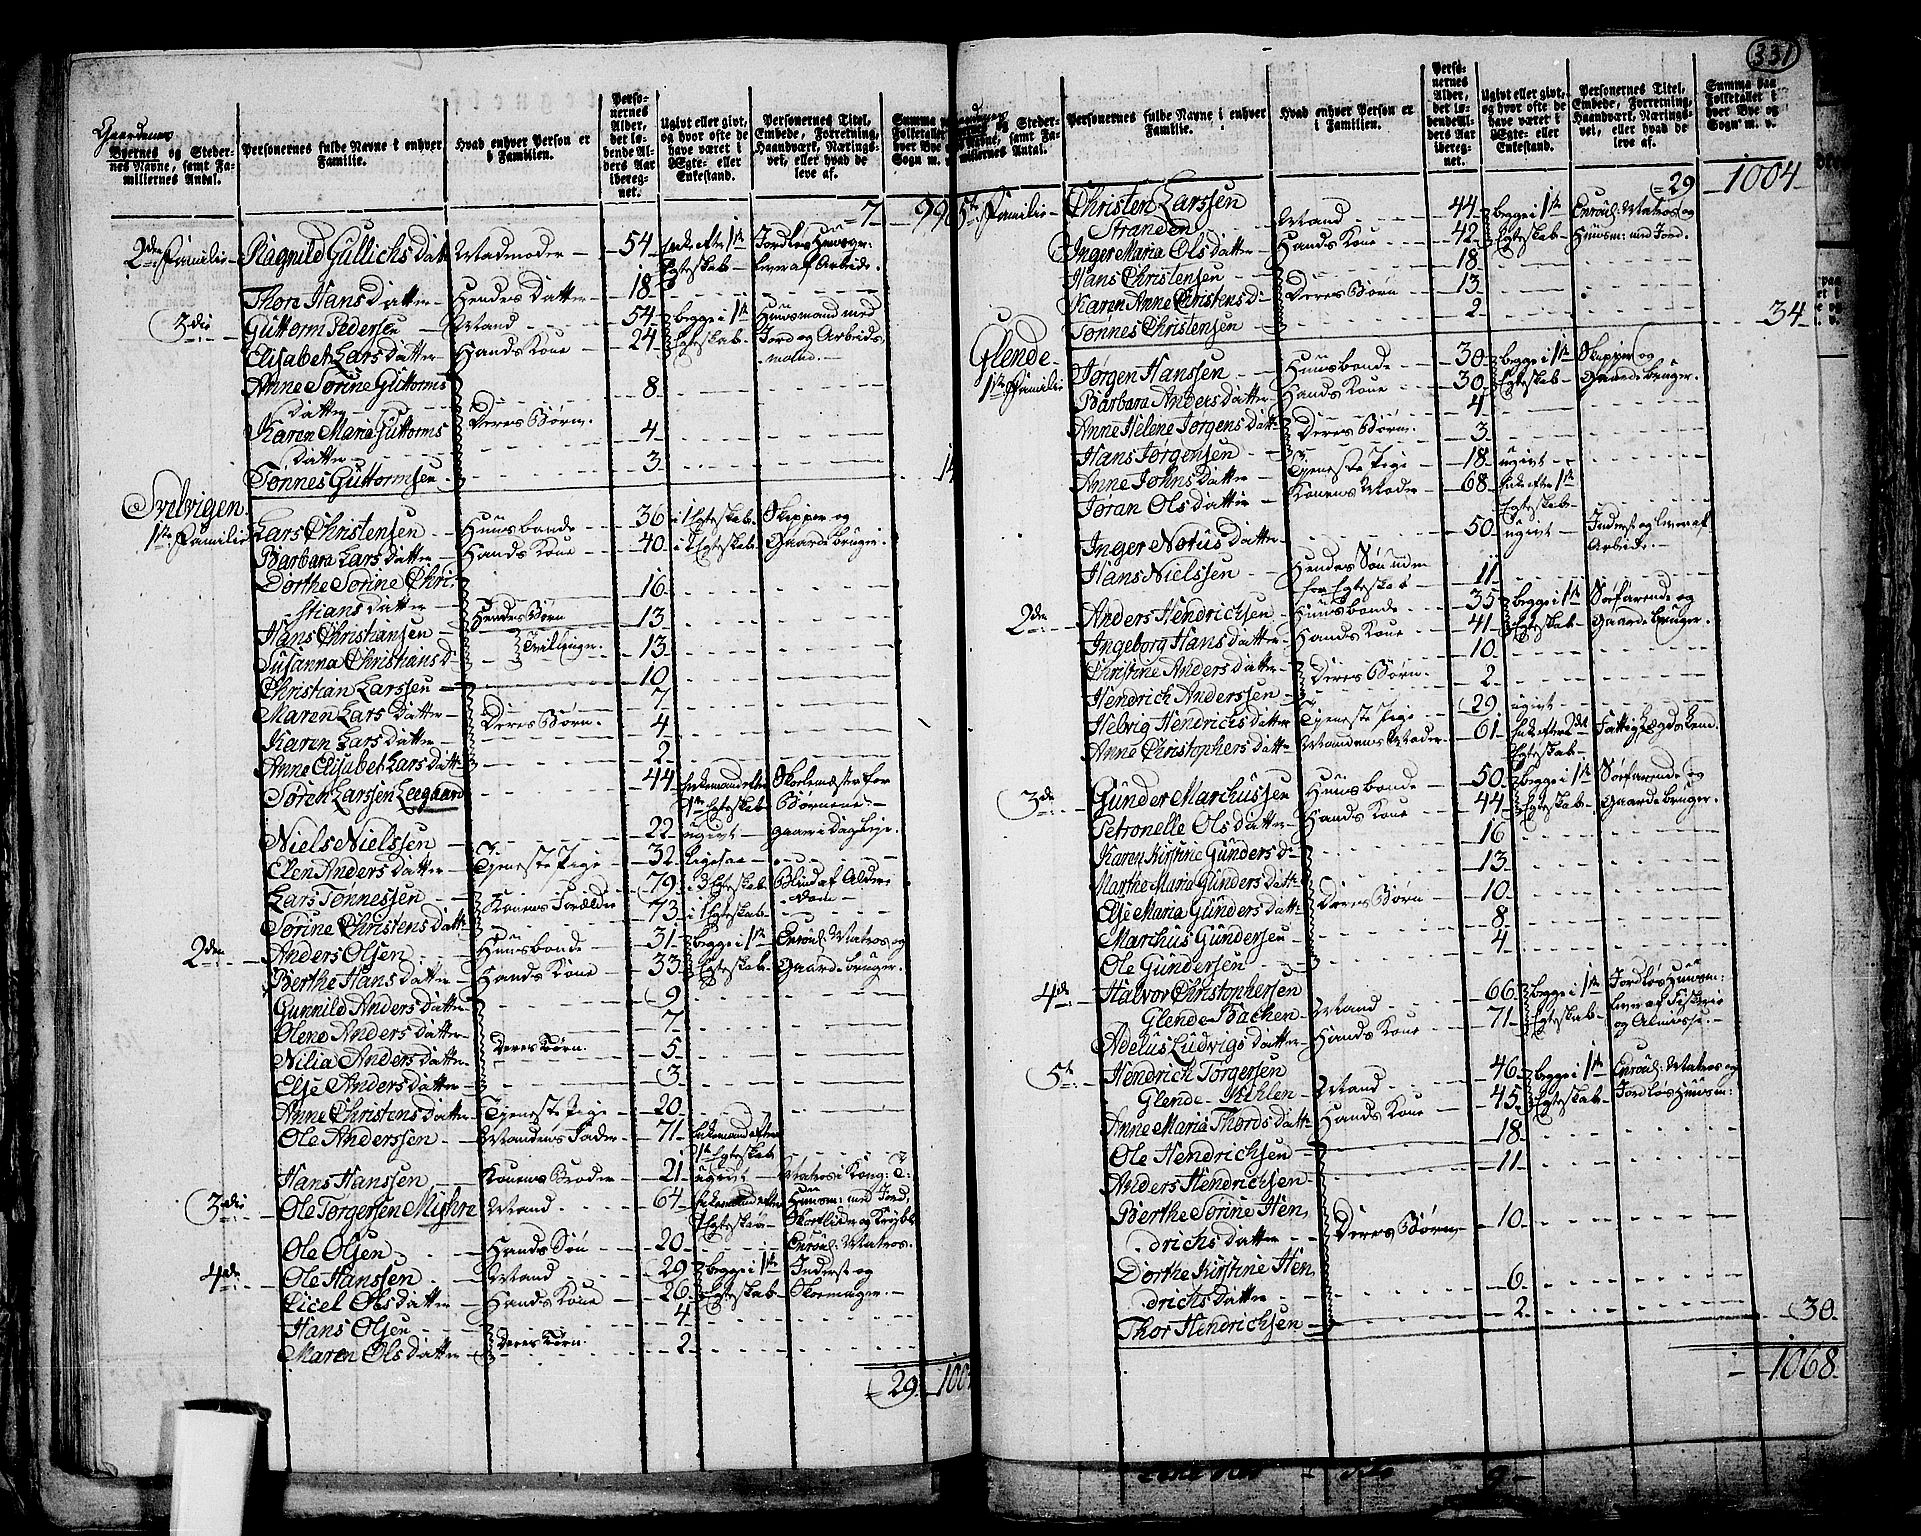 331
Gaardenes
Byernes og Steder-
nes Navne, samt Fa-
miliernes Antal.
Personernes fulde Navne i enhver
Familie.
Hvad enhver Person er
i Familien.
Perso-
nernes
Alder,
det lø-
bende Al-
ders Aar
iberegt-
net.
Ugivt eller givt,
og hvor ofte de
have været i
Egte- eller
Enkestand.
Personernes Titel,
Embede, Forretning,
Haandværk, Nærings-
vei, eller hvad de
leve af.
Summa paa
Folketallet i
hver Bye og
Sogn m. v.
= 7 990
2den Familie Ragnild Gullichs datt Madmoder 54 Enke efter 1ste Jordløs Huusqv:
Egteskab lever af Arbide.
Thore Hans datter Hendes datter 18
3die Guttorm Pedersen Mand 54 begge i 1ste Huusmand med
Elisabet Lars datter Hands Kone 24 Egteskab Jord og Arbeids
mand.
Anne Sørine Guttorms
datter 8
Karen Maria Guttorms Deres Børn. 4
datter
Tønnes Guttormsen 3 14
Svilvigen
1ste Familie Lars Christensen Huusbonde 36 i 1 Egteskab Skipper og
Barbara Lars datter Hands Kone 40 i 2 Egteskab Gaardebruger.
Dorthe Sørine Chri-
stians datter 16
Hans Christiansen Hendes Børn 13
Susanna Christians D Tvillinger. 13
Christian Larssen 10
Maren Lars datter 7
Karen Lars datter Deres Børn. 4
Anne Elisabet Lars datt 2
Søren Larssen Leegaard 44 Enkemand efter Skolemæster for
1ste Egteskab Børnene.
Niels Nielssen 22 ugivt gaar i Dagleje.
Elen Anders datter Tjeneste Pige 32 ligesaa
Lars Tønnessen Konens Forældre 79 i 3 Egteskab Blind af Alder-
Sørine Christens datt 73 i 1 Egteskab dom
2den Anders Olsen Huusbonde 31 begge i 1ste Enroul: Matros og
Berthe Hans datter Hands Kone 33 Egteskab Gaardebruger.
Gunnild Anders datter 9
Olene Anders datter 7
Nilia Anders datter Deres Børn. 5
Else Anders datter 3
Anne Christens datter Tjeneste Pige 20
Ole Anderssen Mandens Fader 71 Enkemand efter
1ste Egteskab
Hans Hanssen Konens Broder 21 ugivt Matros i Kong: T:
3die Ole Torgersen Mand 64 Enkemand efter Huusm: med Jord,
1 Egteskab
Ole Olsen Hands Søn 20 Enroul: Matros.
4de Ole Hanssen Mand 29 begge i 1ste Inderst og
Sicel Ols datter Hands Kone 26 Egteskab Skomager.
Hans Olsen 4
Maren Ols datter Deres Børn. 2
= 29 1004
Personernes fulde Navne i enhver
Familie.
Hvad enhver Person er
i Familien.
Perso-
nernes
Alder,
det lø-
bende Al-
ders Aar
iberegt-
net.
Ugivt eller givt,
og hvor ofte de
have været i
Egte- eller
Enkestand.
Personernes Titel,
Embede, Forretning,
Haandværk, Nærings-
vei, eller hvad de
leve af.
Summa paa
Folketallet i
hver Bye og
Sogn m. v.
= 29 1004
5te Familie Christen Larssen
Stranden Mand 44 begge i 1ste Enroul: Matros og
Inger Maria Ols datter Hands Kone 42 Egteskab Huusm: med Jord.
Hans Christensen 18
Karen Anne Christens d Deres Børn 13
Tønnes Christensen 2 34
Glende
1ste Familie Jørgen Hanssen Huusbonde 30 begge i 1ste Skipper og
Barbara Anders datter Hands Kone 30 Egteskab Gaardebruger.
Anne Helene Jørgens datt Deres Børn. 4
Hans Jørgensen 3
Anne Johns datter Tjeneste Pige 18 ugivt
Jøran Ols datter Konens Moder 68 Enke efter 1ste
Egteskab
Inger Notus datter 50 ugivt Inderst og lever af
Arbeide.
Hans Nielssen Hendes Søn uden
for Egteskab 11
2den Anders Hendrichsen Huusbonde 35 begge i 1ste Søfarende og
Ingeborg Hans datter Hands Kone 41 Egteskab Gaardebruger.
Christine Anders datter Deres Børn. 10
Hendrich Anderssen 2
Helvig Hendrichs datter Tjeneste Pige 29 ugivt
Anne Christophers datt Mandens Moder 61 Enke efter 2det Fattig Lægdslem.
Egteskab
3die Gunder Marchussen Huusbonde 50 begge i 1ste Søfarende og
Petronelle Ols datter Hands Kone 44 Egteskab Gaardebruger.
Karen Kirstine Gunders d 16
Marthe Maria Gunders datt 13
Else Maria Gunders datt Deres Børn 10
Marchus Gundersen 8
Ole Gundersen 4
4de Halvor Christophersen
Glende Bachen Mand 66 begge i 1ste Jordløs Huusm:
Adelus Ludvigs datter Hands Kone 71 Egteskab lever af Fiskerie
og Almisse.
5te Hendrich Torgersen
Glende Mand 46 begge i 1ste Enroul: Matros og
Anne Maria Thords datt Hands Kone 45 Egteskab Jordløs Huusm:
Ole Hendrichsen 18
Anders Hendrichsen 11
Berthe Sørine Hen
drichs datter Deres Børn 10
Dorthe Kirstine Hen
drichs datter 6
Thor Hendrichsen 2 30
= 1068